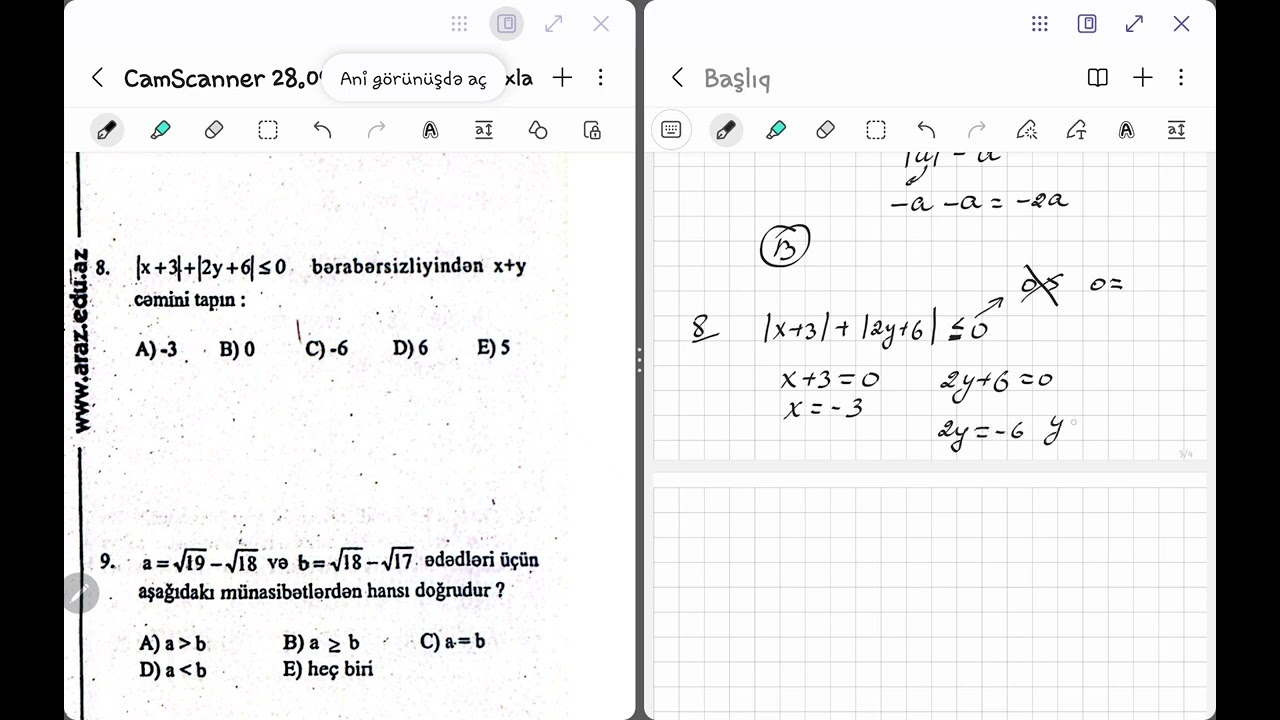 CamScanner 28.0
Ani görünüşdə aç
xla
www.araz.edu.az
8. |x+3|+|2y+6| ≤ 0 bərabərsizliyindən x+y
cəmini tapın :
A) -3 B) 0 C) -6 D) 6 E) 5
9. a = √19 − √18 və b = √18 − √17 ədədləri üçün
aşağıdakı münasibətlərdən hansı doğrudur ?
A) a > b B) a ≥ b C) a = b
D) a < b E) heç biri
Başlıq
-a -a = -2a
B
0= 
8 |x+3| + |2y+6| ≤ 0
x+3=0 2y+6=0
x=-3
2y=-6 y
3/4